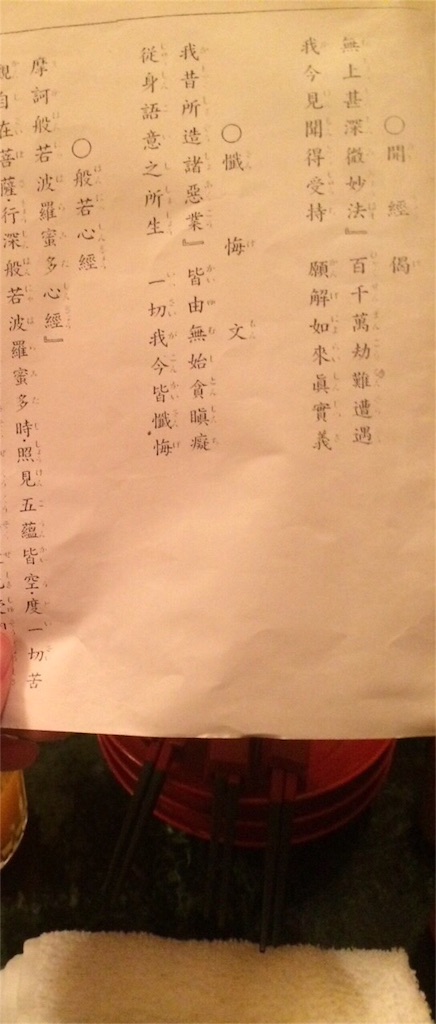 〇開經偈
無上甚深微妙法』百千萬劫難遭遇
我今見聞得受持　願解如來眞實義
〇懺悔文
我昔所造諸惡業』皆由無始貪瞋癡
從身語意之所生　一切我今皆懺悔
〇般若心經
摩訶般若波羅蜜多心經』
觀自在菩薩·行深般若波羅蜜多時·照見五蘊皆空·度一切苦